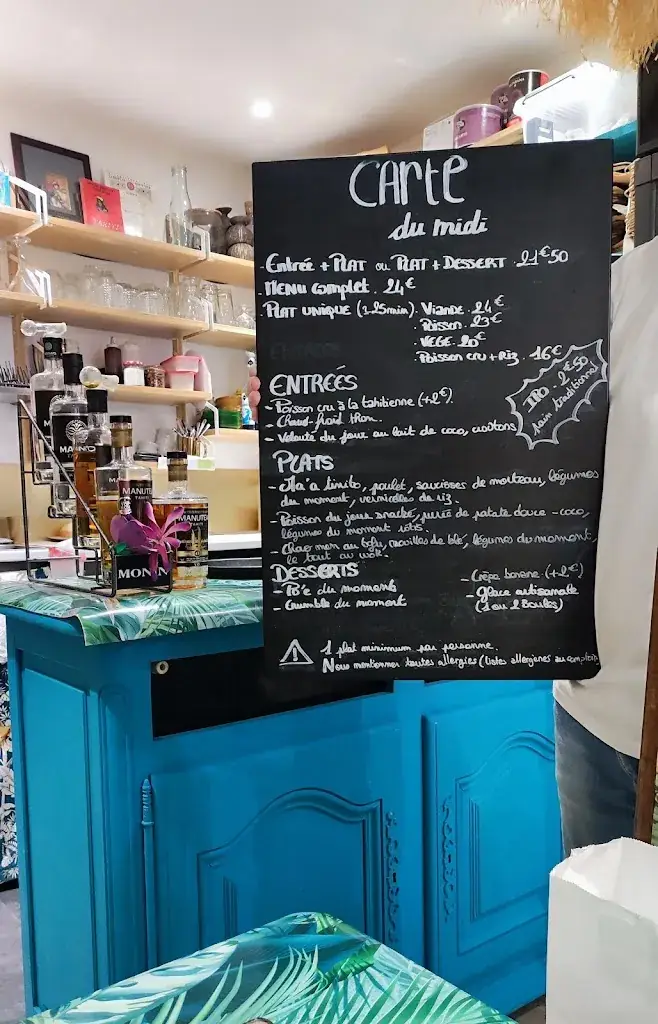 CARTE
du midi
- Entrée + PLAT ou PLAT + DESSERT . 21€50
- MENU complet . 24€
- PLAT UNIQUE (≥25min) . Viande . 24€
. Poisson . 23€
. VEGE . 20€
. Poisson cru + Riz . 16€
IPO : 2€50
pain traditionnel
ENTRÉES
- Poisson cru à la tahitienne (+2€).
- Chaud-froid thon.
- Velouté du jour au lait de coco, croûtons
PLATS
- Ma'a tinito, poulet, saucisses de morteau, légumes
du moment, vermicelles de riz.
- Poisson du jour snacké, purée de patate douce-coco,
légumes du moment rôtis
- Chao men au tofu, nouilles de blé, légumes du moment,
le tout au wok.
DESSERTS
- Po'e du moment
- Crumble du moment
- Crêpe banane (+2€)
- Glace artisanale
(1 ou 2 Boules)
1 plat minimum par personne.
Nous mentionner toutes allergies (listes allergènes au comptoir)
MANUTEA
TAHITI
MANUTEA
MONIN